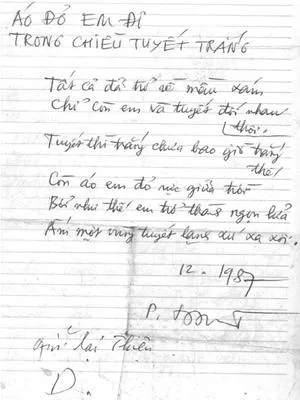 ÁO ĐỎ EM ĐI
TRONG CHIỀU TUYẾT TRẮNG
Tất cả đã trở về màu xám
Chỉ còn em và tuyết đối nhau
thôi.
Tuyết thì trắng chưa bao giờ trắng
thế
Còn áo em đỏ rực giữa trời
Bởi như thế em trở thành ngọn lửa
Ấm một vùng tuyết lạnh xứ xa xôi.
12.1987
P.
Gửi lại Thiện
D.